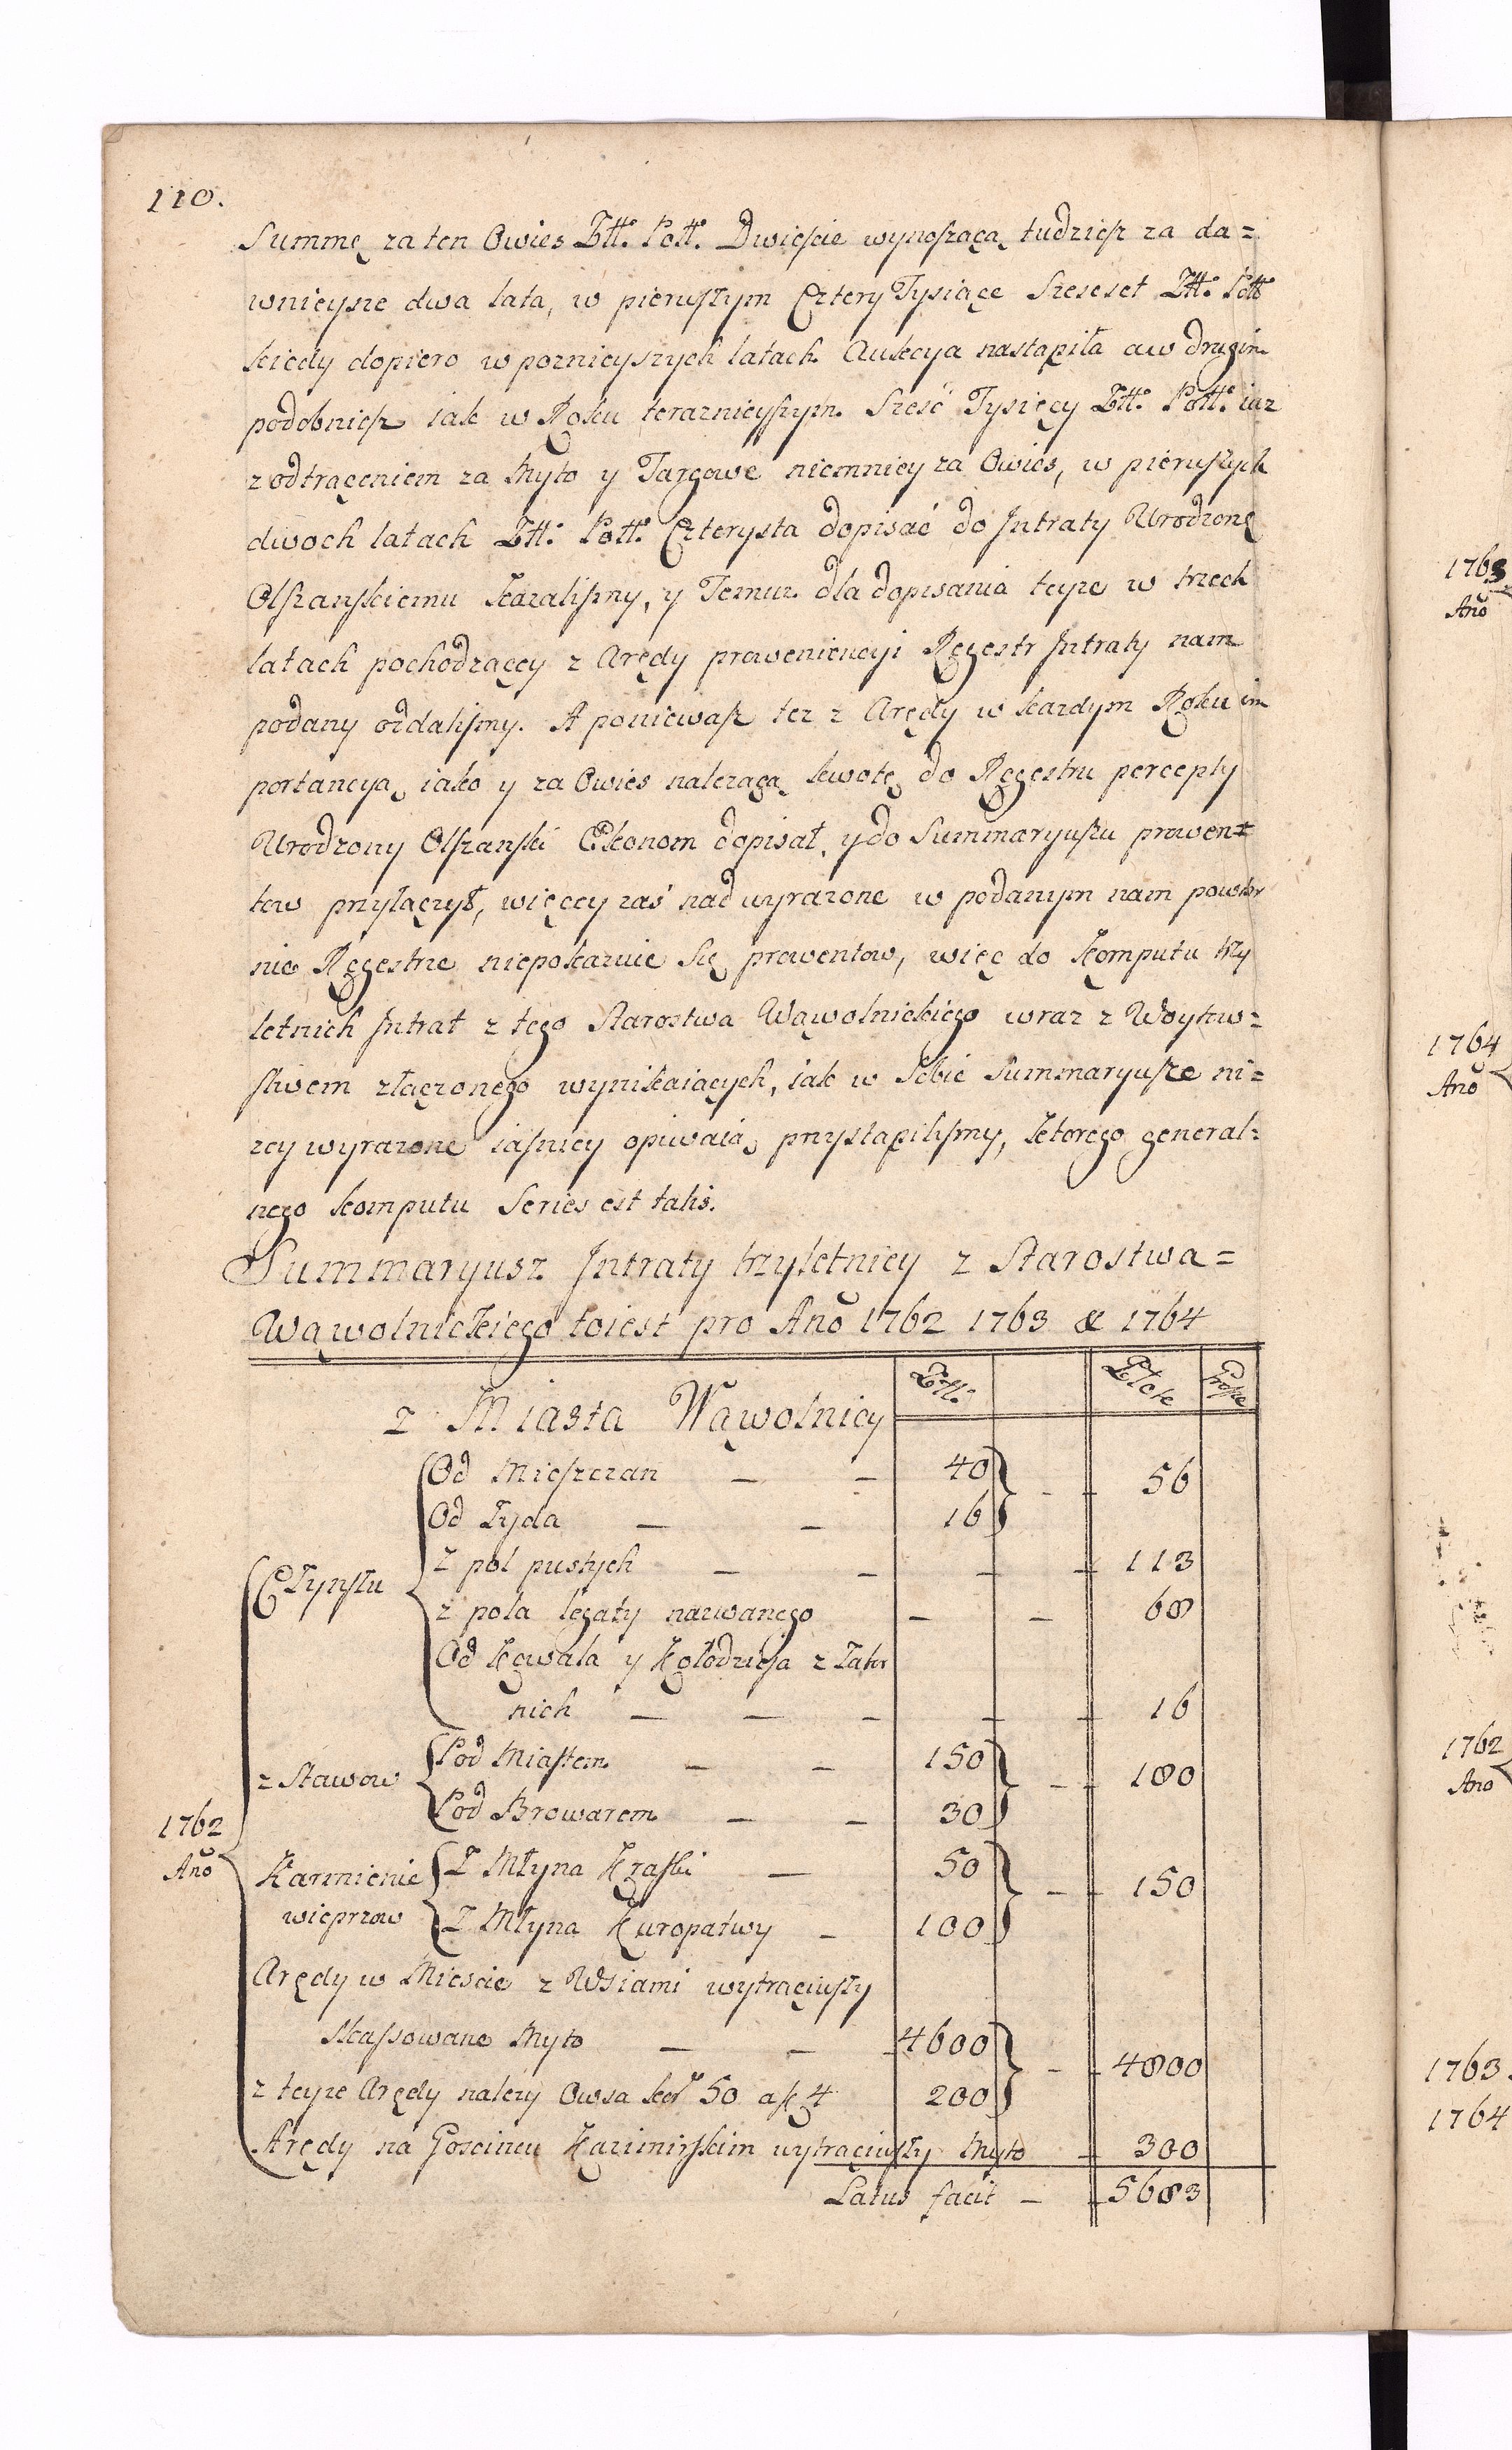 110.
Summę za ten Owies Złł. Poll. Dwieście wynoszącą tudziesz za da=
wnieysze dwa lata, w pierwszym Cztery Tysiące Szeseset Złł. Poll
kiedy dopiero w poznieyszych latach Aukcya nastąpiła a w drugim
podobniesz iak w Roku teraznieyszym Sześć Tysięcy Złł. Poll. iuz
z odtrąceniem za Myto y Targowe niemniey za Owies, w pierwszych
dwoch latach Złł. Poll. Czterysta dopisać do Jntraty Urodzonę
Olszanskiemu kazalismy, y Temuz dla dopisania teyze w trzech
latach pochodzącey z Arędy proweniencyi Regestr Jntraty nam
podany oddalismy. A poniewasz tez z Arędy w kazdym Roku im
portancyą iako y za Owies nalezącą kwotę do Regestru percepty
Urodzony Olszanski Ekonom dopisał, y do Summaryuszu prowen=
tow przyłączył, więcey zaś nad wyrazone w podanym nam powtor
nie Regestrze niepokazuie Się prowentow, więc do Komputu trzy
letnich Jntrat z tego Starostwa Wąwolnickiego wraz z Woytow=
stwem złączonego wynikaiących, iak w Sobie Summaryusze ni=
zey wyrazone iasniey opiwaią przystąpilismy, ktorego general=
nego komputu Series est talis.
Summaryusz Jntraty trzyletniey z Starostwa=
Wąwolnickiego toiest pro Año 1762 1763 & 1764
Złł. Złote Grosze
z Miasta Wąwolnicy
Od Mieszczan — — 40 } - - 56
Od Zyda — — 16
Czynszu
z pol pustych — — — - 113
z pola legaty nazwanego — — 68
Od Kowala y Kołodzieja z Zabo
nich — — — — - 16
z Stawow
Pod Miastem — — 150 } - - 180
Pod Browarem — — 30
1762
Año
Karmienie
wieprzow
Z Młyna Kraski — 50 } - - 150
Z Młyna Kuropatwy — 100
Arędy w Miescie z Wsiami wytrąciwszy
skassowane Myto — — 4600 } - - 4800
z teyze Arędy nalezy Owsa kor 50 a f 4 200
Arędy na Goscincu Kazimirskim wytrąciwszy Myto - 300
Latus facit — - 5683
1763
Año
1764
Año
1762
Año
1763
1764